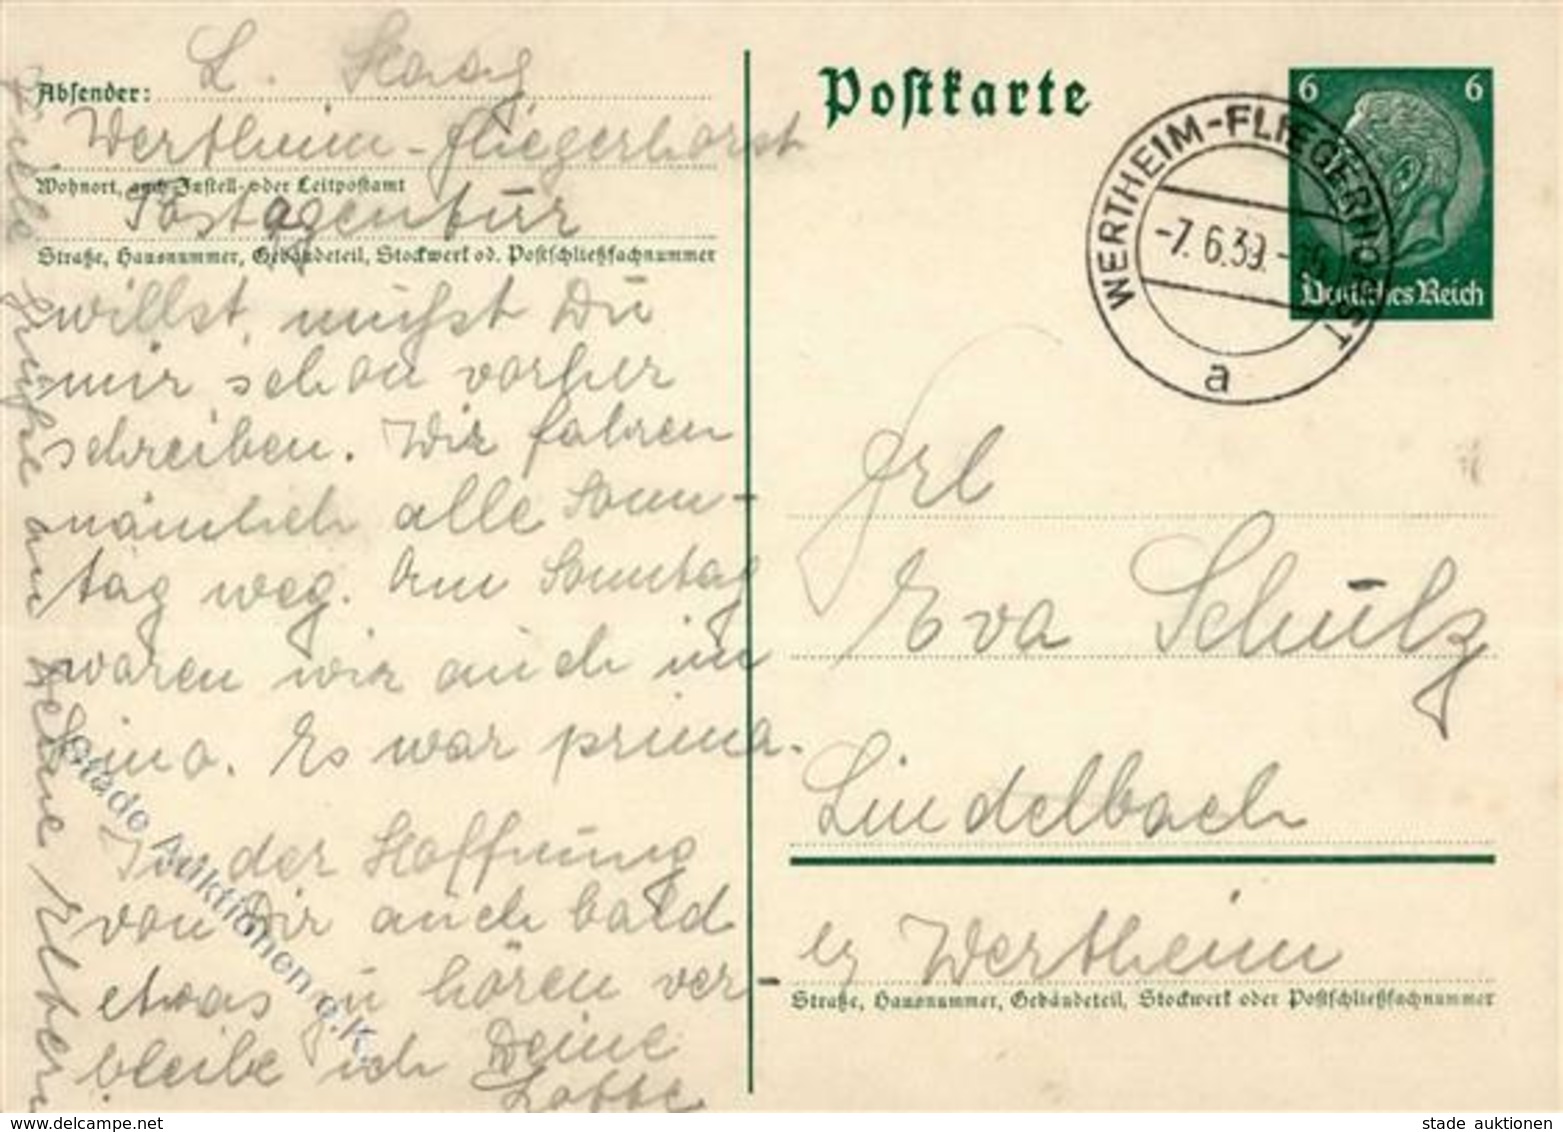 Absender: L. Haag
Wertheim-Fliegerhorst
Wohnort, auch Zustell- oder Leitpostamt
Postagentur
Straße, Hausnummer, Gebäudeteil, Stockwerk od. Postschließfachnummer
willst, mußt Du
mir schon vorher
schreiben. Wir fahren
nämlich alle Sonn-
tag weg. Am Sonntag
waren wir auch im
Kino. Es war prima.
In der Hoffnung
von Dir auch bald
etwas zu hören ver-
bleibe ich Deine
Lotte
Viele Grüße an Deine Eltern
Postkarte
6 6
Deutsches Reich
WERTHEIM-FLIEGERHORST
-7.6.39.-
a
Frl
Eva Schulz
Lindelbach
Wertheim
Straße, Hausnummer, Gebäudeteil, Stockwerk oder Postschließfachnummer
Stade Auktionen e.K.
stade auktionen
www.delcampe.net